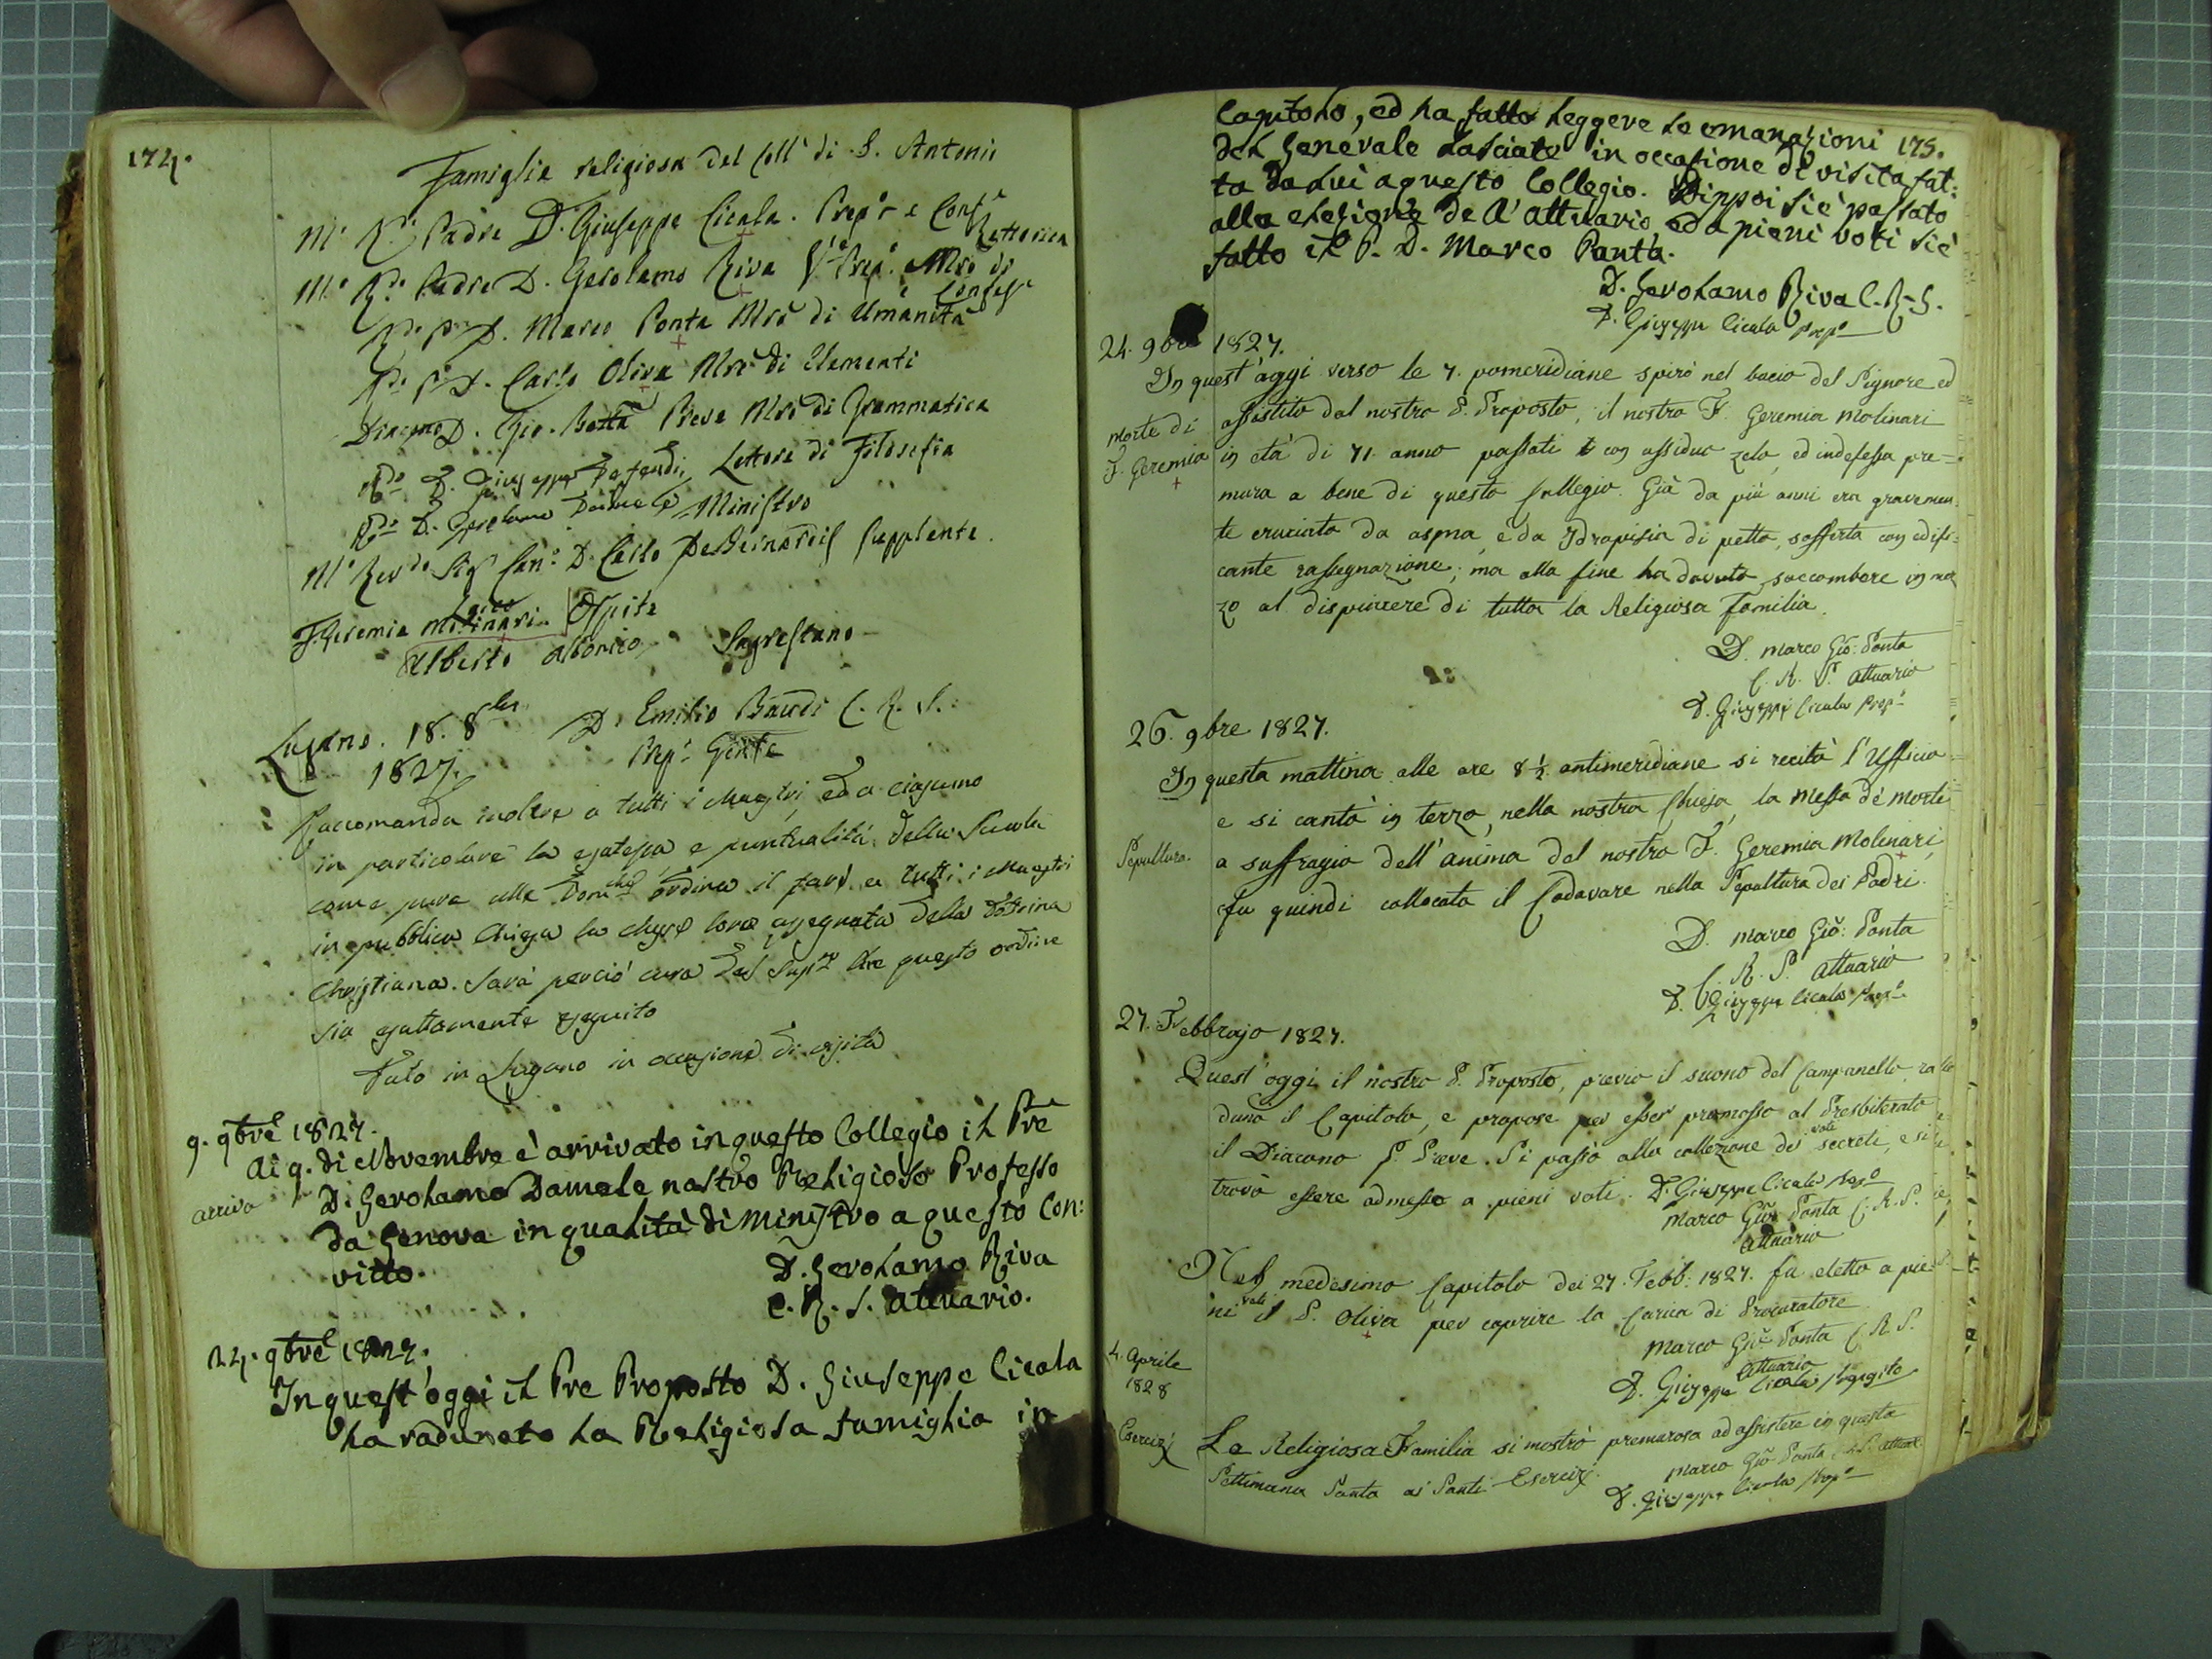 174.
Famiglia religiosa del Coll° di S. Antonio
M.° R.do Padre D. Giuseppe Cicala. Prep.to e Conf.e
M.° R.do Padre D. Gerolamo Riva V. Prep. Mro di Rettorica
R.do P. D. Marco Ponta Mrõ di Umanità Confess
R.do P. D. Carlo Oliva Mrõ di Elementi
Diacono D. Gio. Batta Preve Mrõ di Grammatica
R.do D. Giuseppe Lettore di Filosofia
R.do D. Gerolamo Damele Ministro
M.° Rev.do Sig.r Can.° D. Carlo DeBernardis Supplente.
F. Geremia Molinari Laico Ospite
Alberto Sagrestano
Lugano. 18. 8bre
1827.
D. Emilio Baudi C. R. S.
Prep.° Gñle
Raccomanda inoltre a tutti i Maestri, ed a ciascuno
in particolare la esatezza e puntualità della Scuola
come pure alle Dom.che ordina il farsi da tutti i Maestri
in pubblica Chiesa la classe loro assegnata della Dotrina
Christiana. Sarà perciò cura del Sup.re che questo ordine
sia esattamente eseguito
Dato in Lugano in occasione di visita
9. 9bre 1827.
Ai 9. di Novembre è arrivato in questo Collegio il Pre
arrivo
D. Gerolamo Damele nostro Religioso Professo
da Genova in qualità di Ministro a questo Con:
vitto.
D. Gerolamo Riva
C. R. S. Attuario.
24. 9bre 1827.
In quest'oggi il Pre Proposto D. Giuseppe Cicala
ha radunato la Religiosa famiglia in
175.
Capitolo, ed ha fatto leggere le emanazioni
del Generale lasciate in occasione di visita fat:
ta da lui a questo Collegio. Dippoi si è passato
alla elezione de l'attuario, ed a pieni voti si è
fatto il P. D. Marco Ponta.
D. Gerolamo Riva C. R. S.
D. Giuseppe Cicala Prep.°
24. 9bre 1827.
In quest'oggi verso le 7. pomeridiane spirò nel bacio del Signore ed
assistito dal nostro P. Proposto, il nostro F. Geremia Molinari
morte di
F. Geremia
in età di 71. anno passati con assiduo zelo, ed indefessa pre=
mura a bene di questo Collegio. Già da più anni era gravemen
te cruciato da asma, e da Idropisia di petto, sofferta con edifi:
cante rassegnazione; ma alla fine ha dovuto soccombere in mez
zo al dispiacere di tutta la Religiosa Familia.
D. Marco Gio: Ponta
C. R. S. Attuario
D. Giuseppe Cicala Prep.°
26. 9bre 1827.
In questa mattina alle ore 8 ½ antimeridiane si recitò l'Ufficio
e si cantò in terzo, nella nostra Chiesa, la Messa de' morti
Sepoltura.
a suffragio dell'anima del nostro F. Geremia Molinari,
fu quindi collocato il Cadavare nella Sepoltura dei Padri.
D. Marco Gio: Ponta
C. R. S. Attuario
D. Giuseppe Cicala Prep.°
27. Febbrajo 1827.
Quest'oggi il nostro P. Proposto, previo il suono del Campanello, ra
dunò il Capitolo, e propose per esser promosso al Presbiterato
il Diacono P. Preve. Si passò alla collezione dei voti secreti, e si
trovò essere admesso a pieni voti. D. Giuseppe Cicala Prep.°
Marco Gio: Ponta C. R. S.
Attuario
Nel medesimo Capitolo dei 27. Febb: 1827. fu eletto a pie
ni voti il P. Oliva per coprire la Carica di Procuratore
Marco Gio: Ponta C. R. S.
Attuario
D. Giuseppe Cicala Preposito
4. Aprile
1828
Esercizj
La Religiosa Familia si mostrò premurosa ad assistere in questa
Settimana Santa ai Santi Esercizj.
Marco Gio: Ponta C. R. S. Attuar.
D. Giuseppe Cicala Prep.°